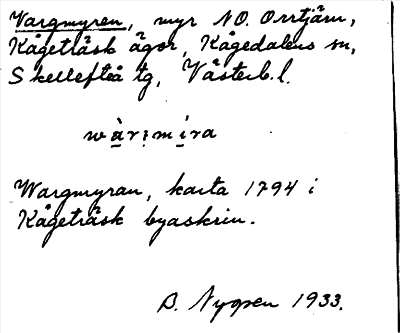 Vargmyren, myr NO. Orrtjärn,
Kågeträsk ägor, Kågedalens sn,
Skellefteå tg, Västerb. l.
wàrìmíra
Wargmyran, karta 1794 i
Kågeträsk byaskrin.
B. Nygren 1933.